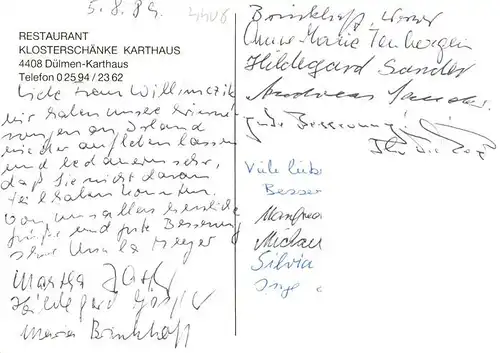 5.8.89
4408
RESTAURANT
KLOSTERSCHÄNKE KARTHAUS
4408 Dülmen-Karthaus
Telefon 0 25 94 / 23 62
Liebe Frau
wir haben unsere Erinne-
rungen an Island
wieder aufleben lassen
und bedauern sehr,
daß Sie nicht daran
teilhaben konnten.
Von uns allen herzliche
Grüße und gute Besserung
Ihre Ursula Meyer
Martha
Hildegard
Maria Brinkhoff
Brinkhoff, Werner
Anne Marie Tenbergen
Hildegard Sander
Andreas
Gute Besserung!
Viele liebe
Besser
Manfred
Michael
Silvia
Inge